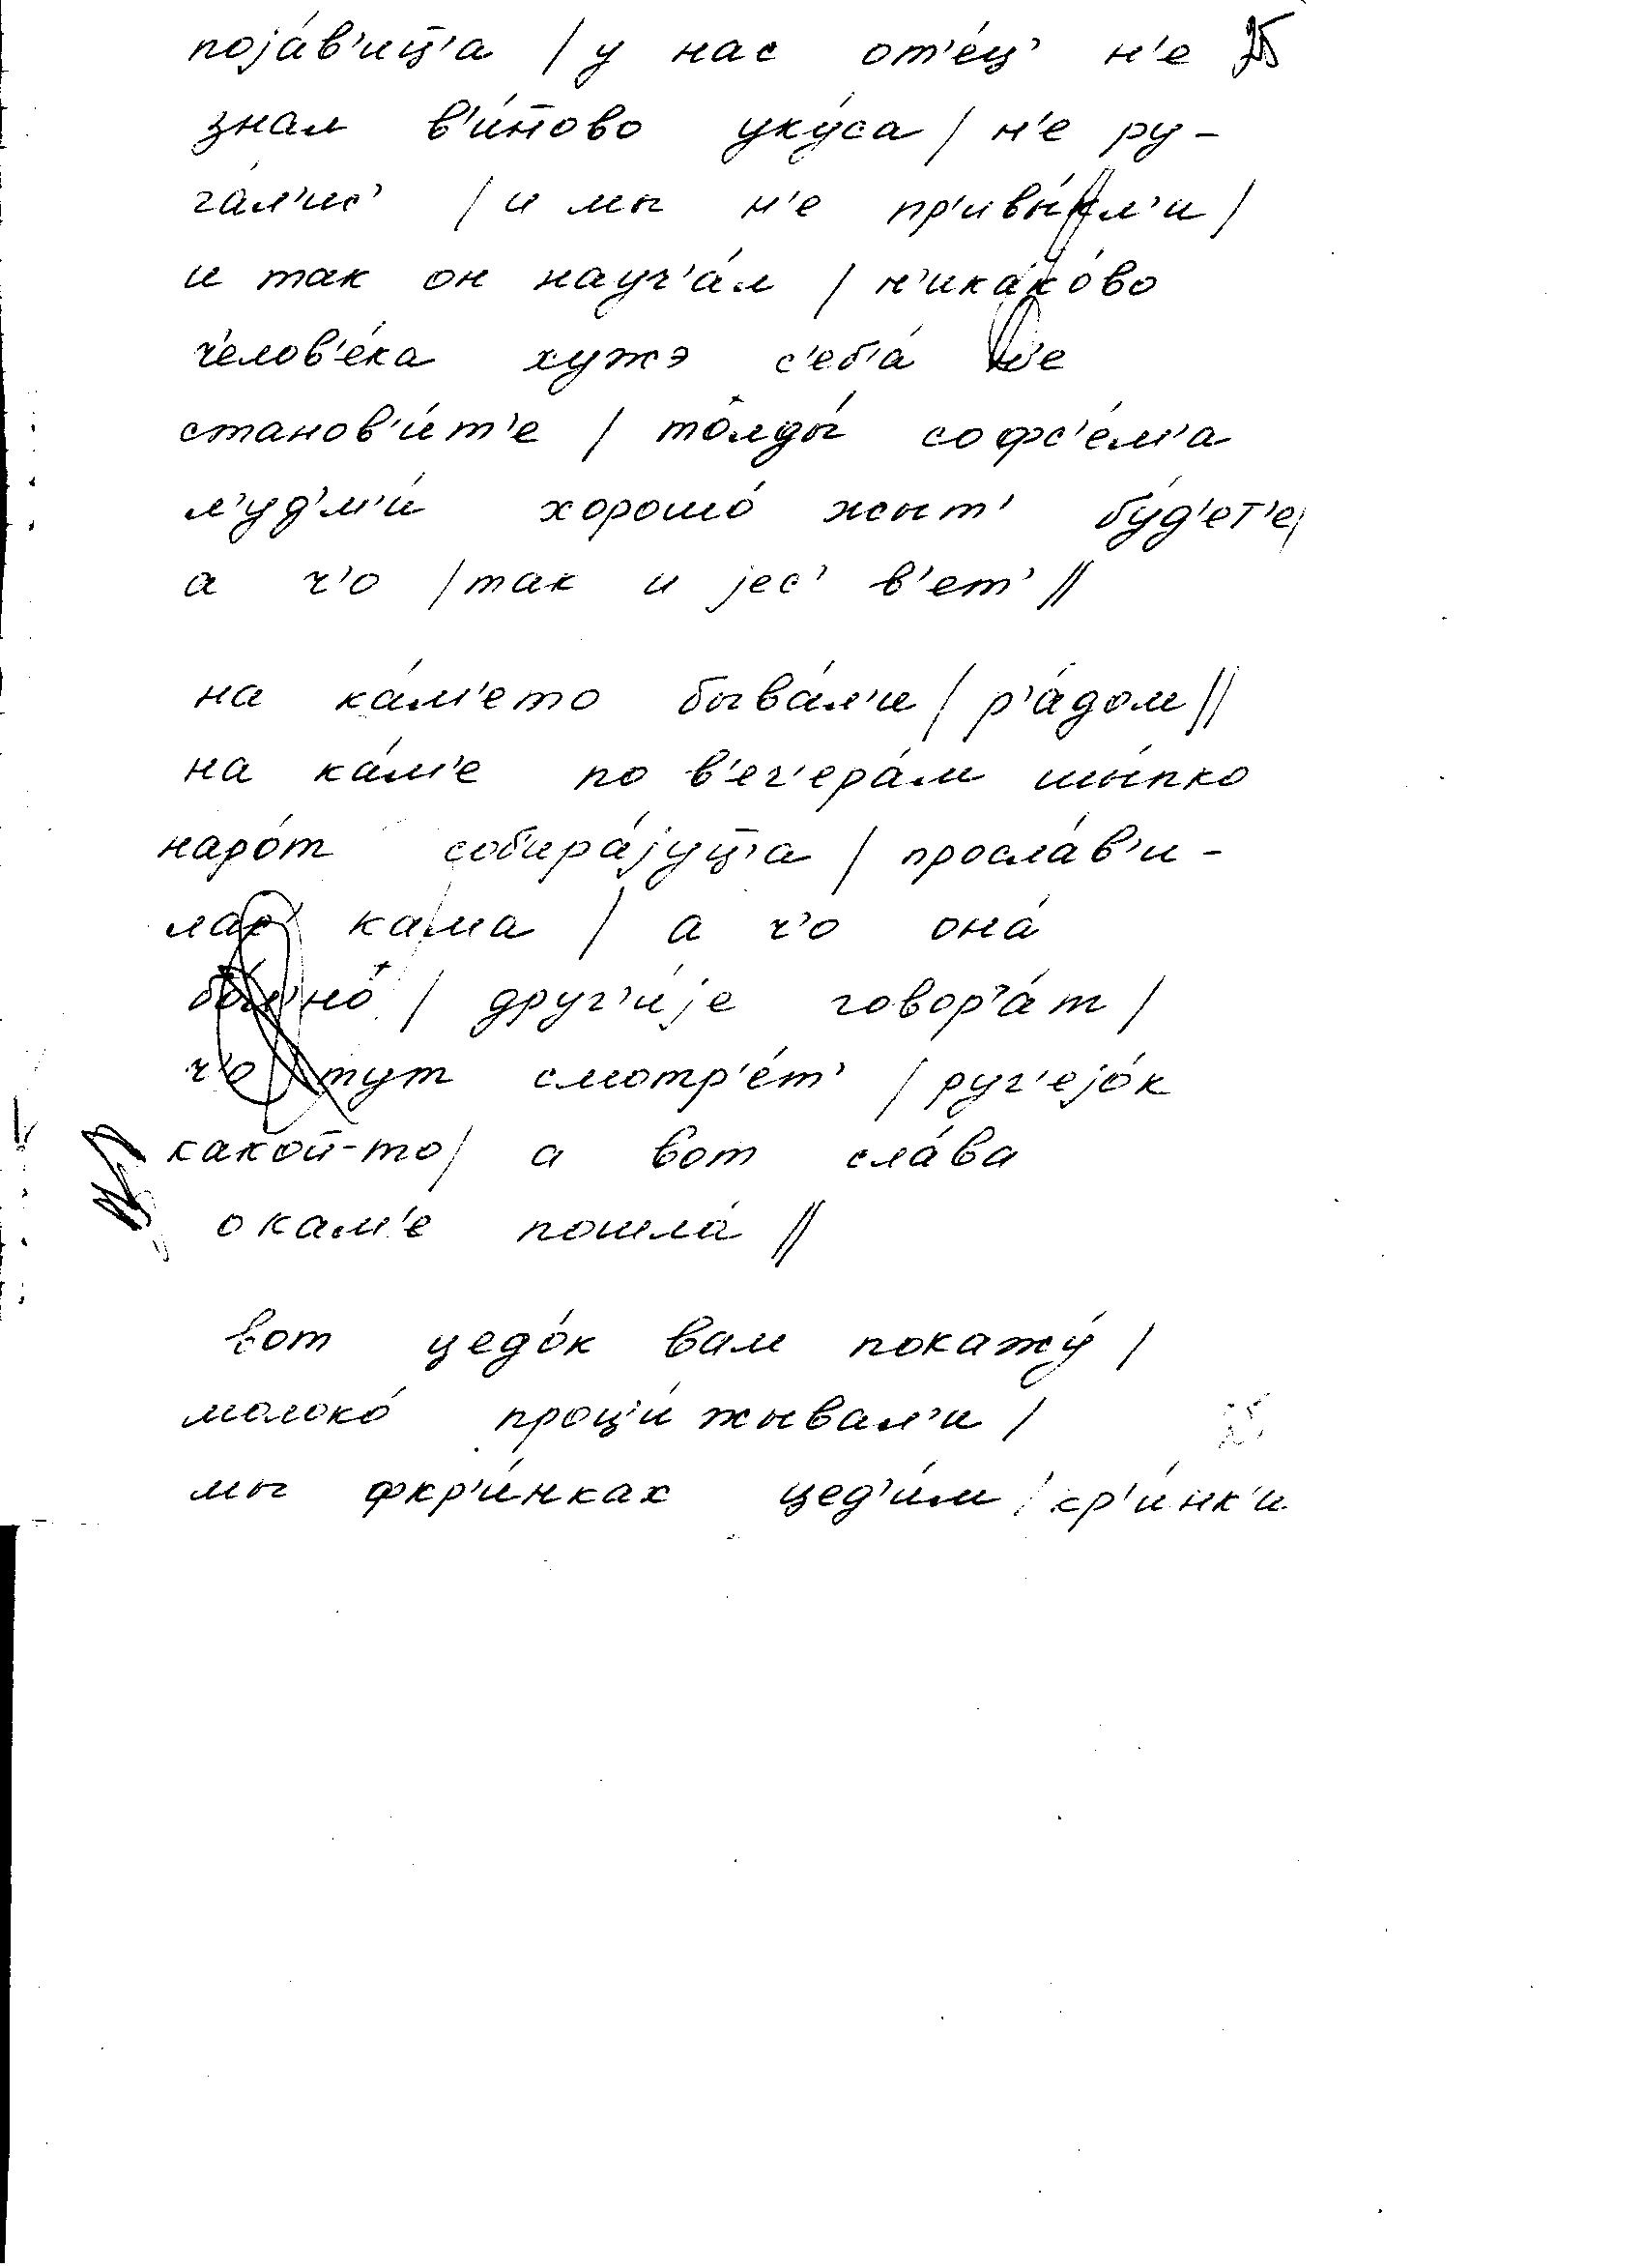 појáв'иц̄'а / у нас от'éц' н'е 25
знал в'и́нбво укýса / н'е ру-
гáл'ис' / и мы н'е пр'ивы́кл'и /
и так он науч'áл / н'икакóво
ч'елов'éка хужэ с'еб'á н'е
станов'и́т'е / толды́ софс'éм'а
л'уд'м'и́ хорошó жыт' бýд'ет'е /
а ч'о / так и јес' в'ет' //
на кáм'ето бывáл'и / р'áдом //
на кáм'е по в'еч'ерáм шы́пко
нарóт собирáјуц̄'а / прослáв'и-
лас' кама / а ч'о онá
бол'нó / друг'и́је говор'áт /
ч'о тут смотр'éт' / руч'ејóк
какой-то / а вот слáва
о кам'е пошлá //
вот цедóк вам покажý /
молокó проци́жывал'и /
мы фкр'и́нках цед'и́м / кр'и́нк'и